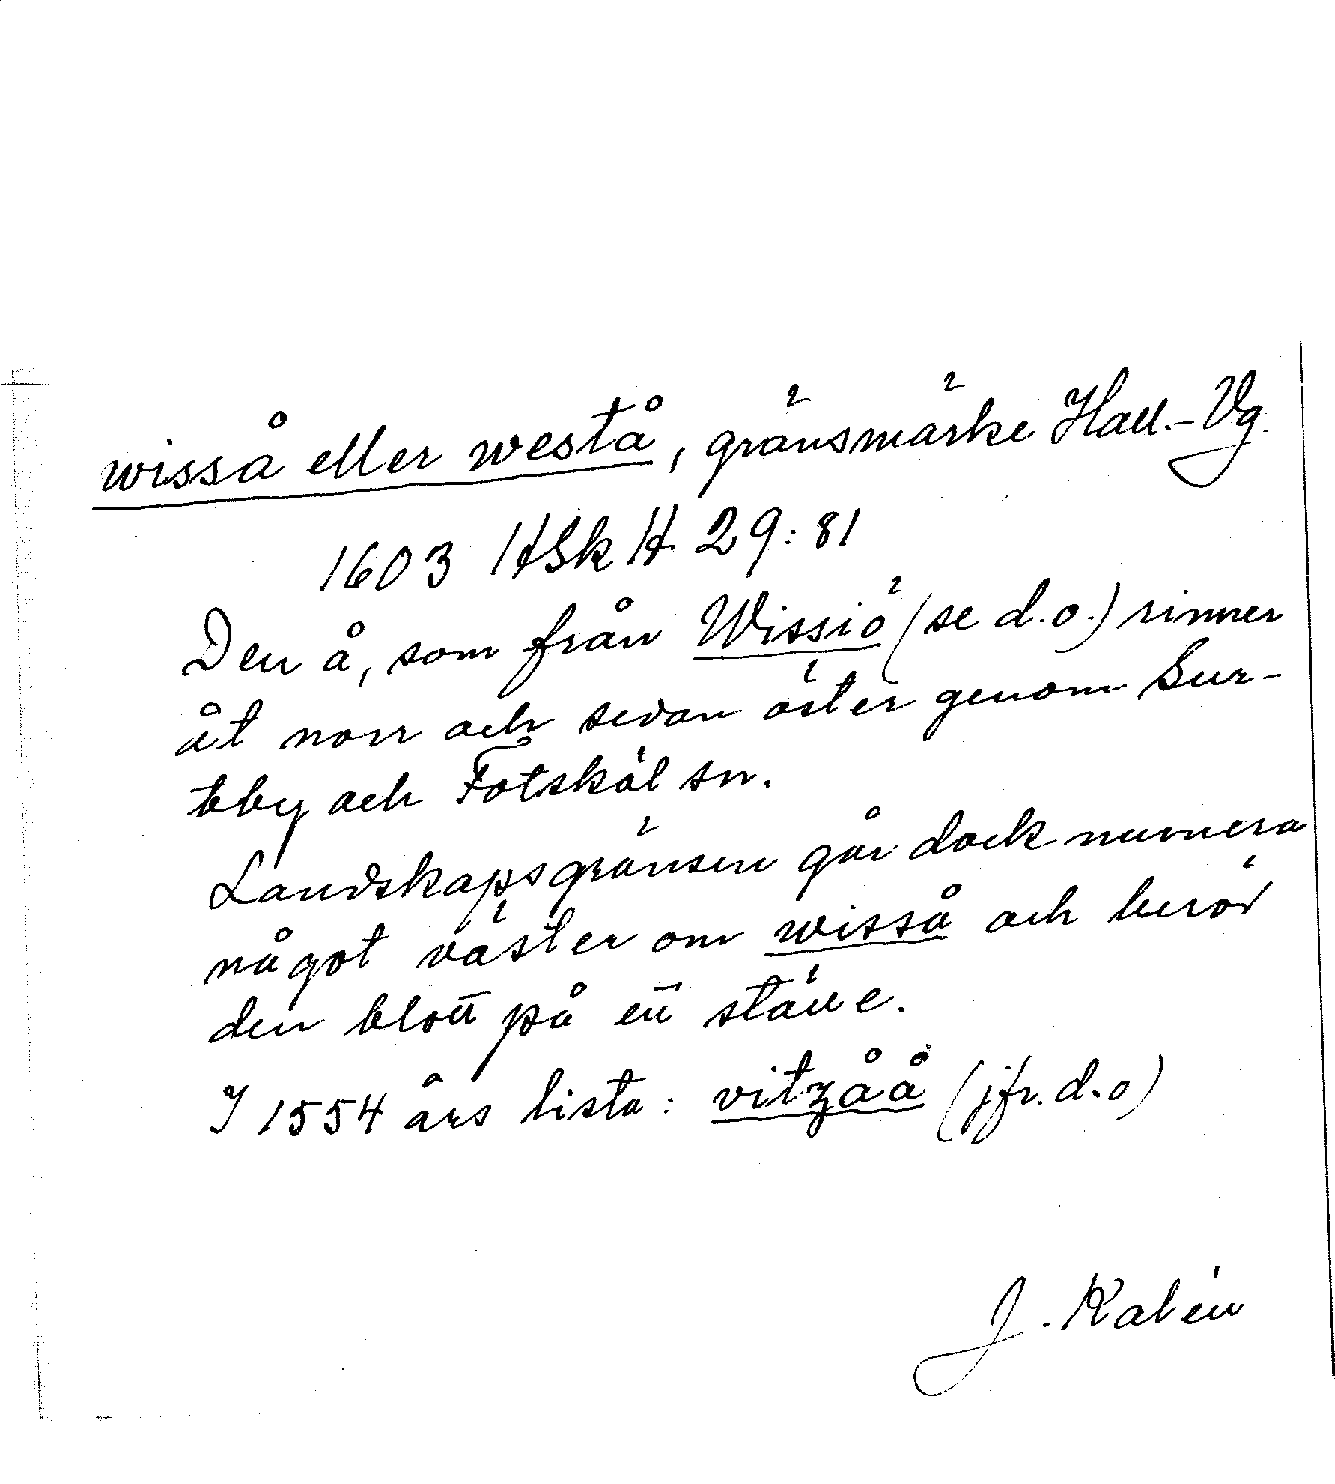 wisså eller westå, gränsmärke Hall.-Vg.
1603 HSkH 29:81
Den å, som från Wissiö (se d.o.) rinner
åt norr och sedan öster genom Sur-
teby och Fotskäl sn.
Landskapsgränsen går dock numera
något väster om wisså och berör
den blott på ett ställe.
I 1554 års lista: vitzåå (jfr. d.o)
J. Kalén